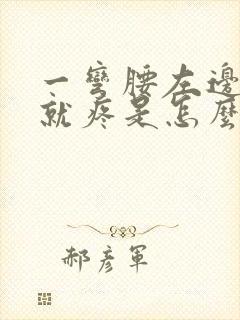 一彎腰左邊
就疼是怎麼
郝彥軍